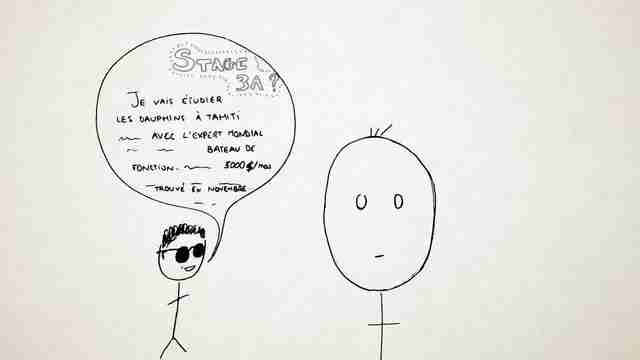 STAGE
3A ?
JE VAIS ÉTUDIER
LES DAUPHINS À TAHITI
AVEC L'EXPERT MONDIAL
BATEAU DE
FONCTION. 5000$/mois
TROUVÉ EN NOVEMBRE